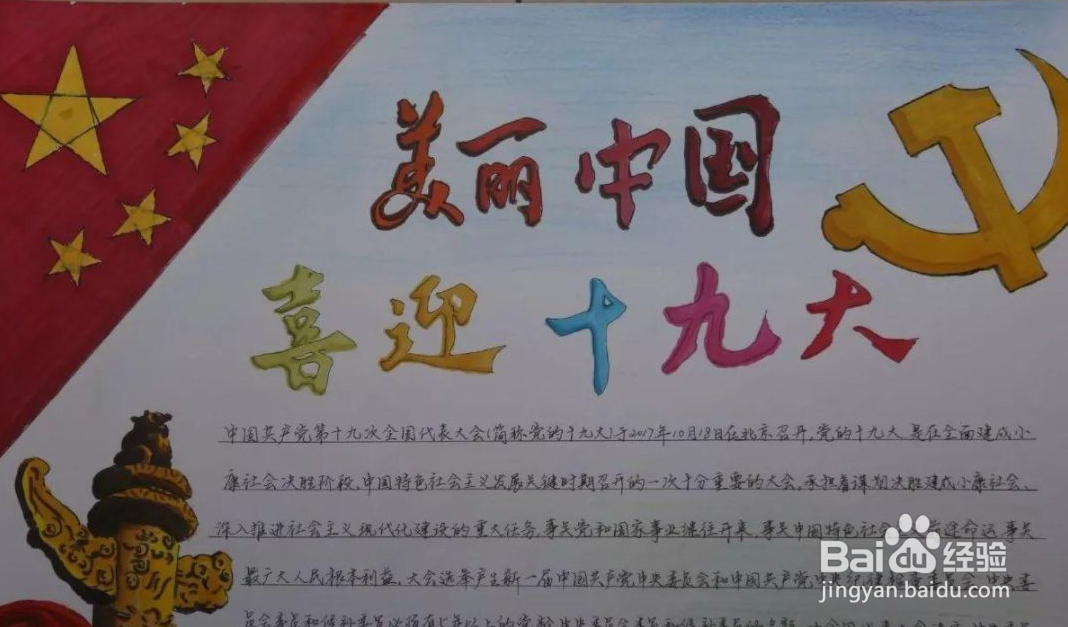 美丽中国
喜迎十九大
中国共产党第十九次全国代表大会(简称党的十九大)于2017年10月18日在北京召开,党的十九大是在全面建成小
康社会决胜阶段,中国特色社会主义发展关键时期召开的一次十分重要的大会,承担着谋划决胜建成小康社会、
深入推进社会主义现代化建设的重大任务,事关党和国家事业继往开来,事关中国特色社会 前途命运,事关
最广大人民根本利益,大会选举产生新一届中国共产党中央委员会和中国共产党中央纪律检查委员会,中央委
员会委员和候补委员必须有五年以上的党龄
Baidu经验
jingyan.baidu.com